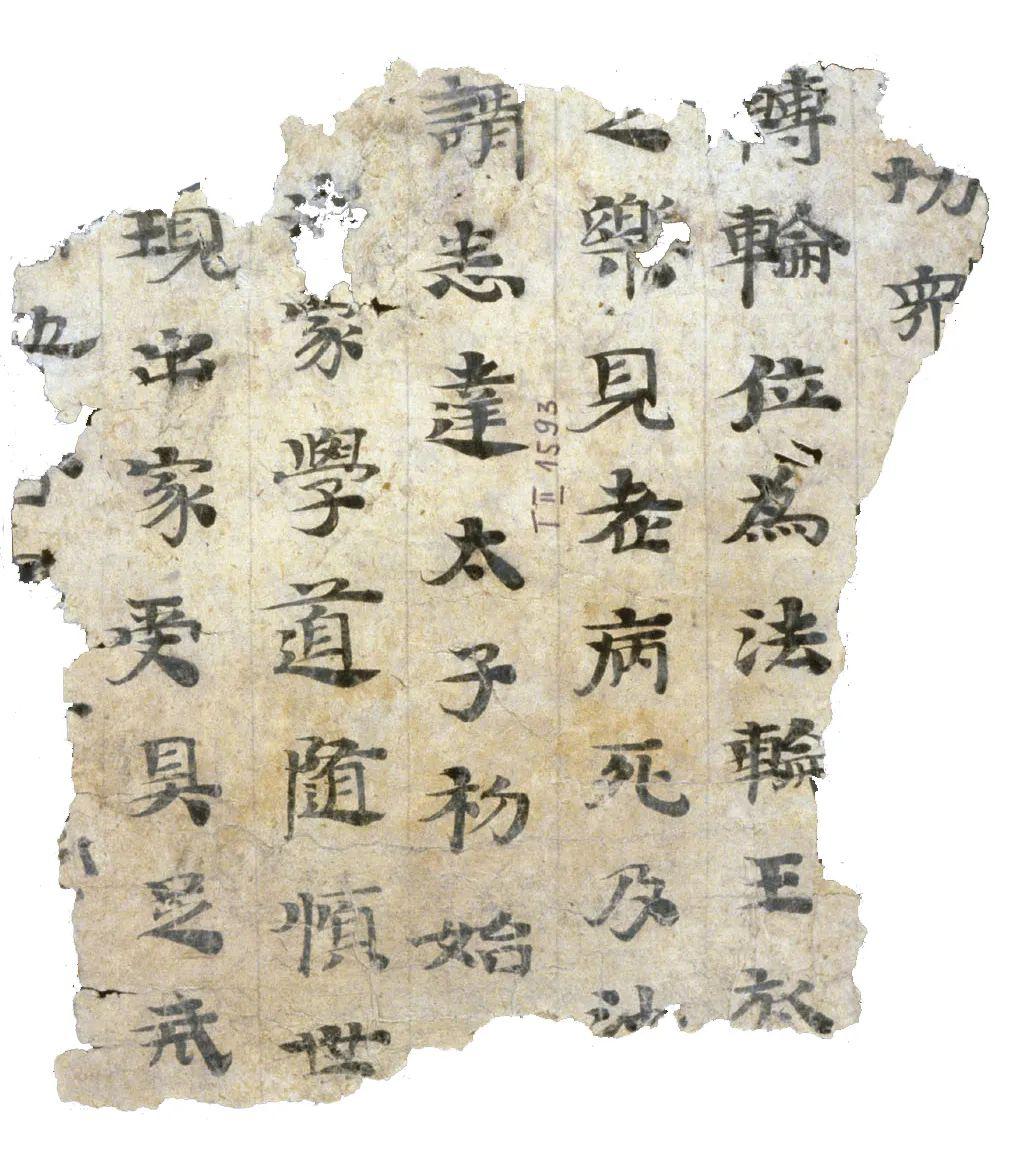 切眾
轉輪位為法輪王於
樂見老病死及沙
謂悉達太子初始
家學道隨順世
現出家受具足戒
T II 1593